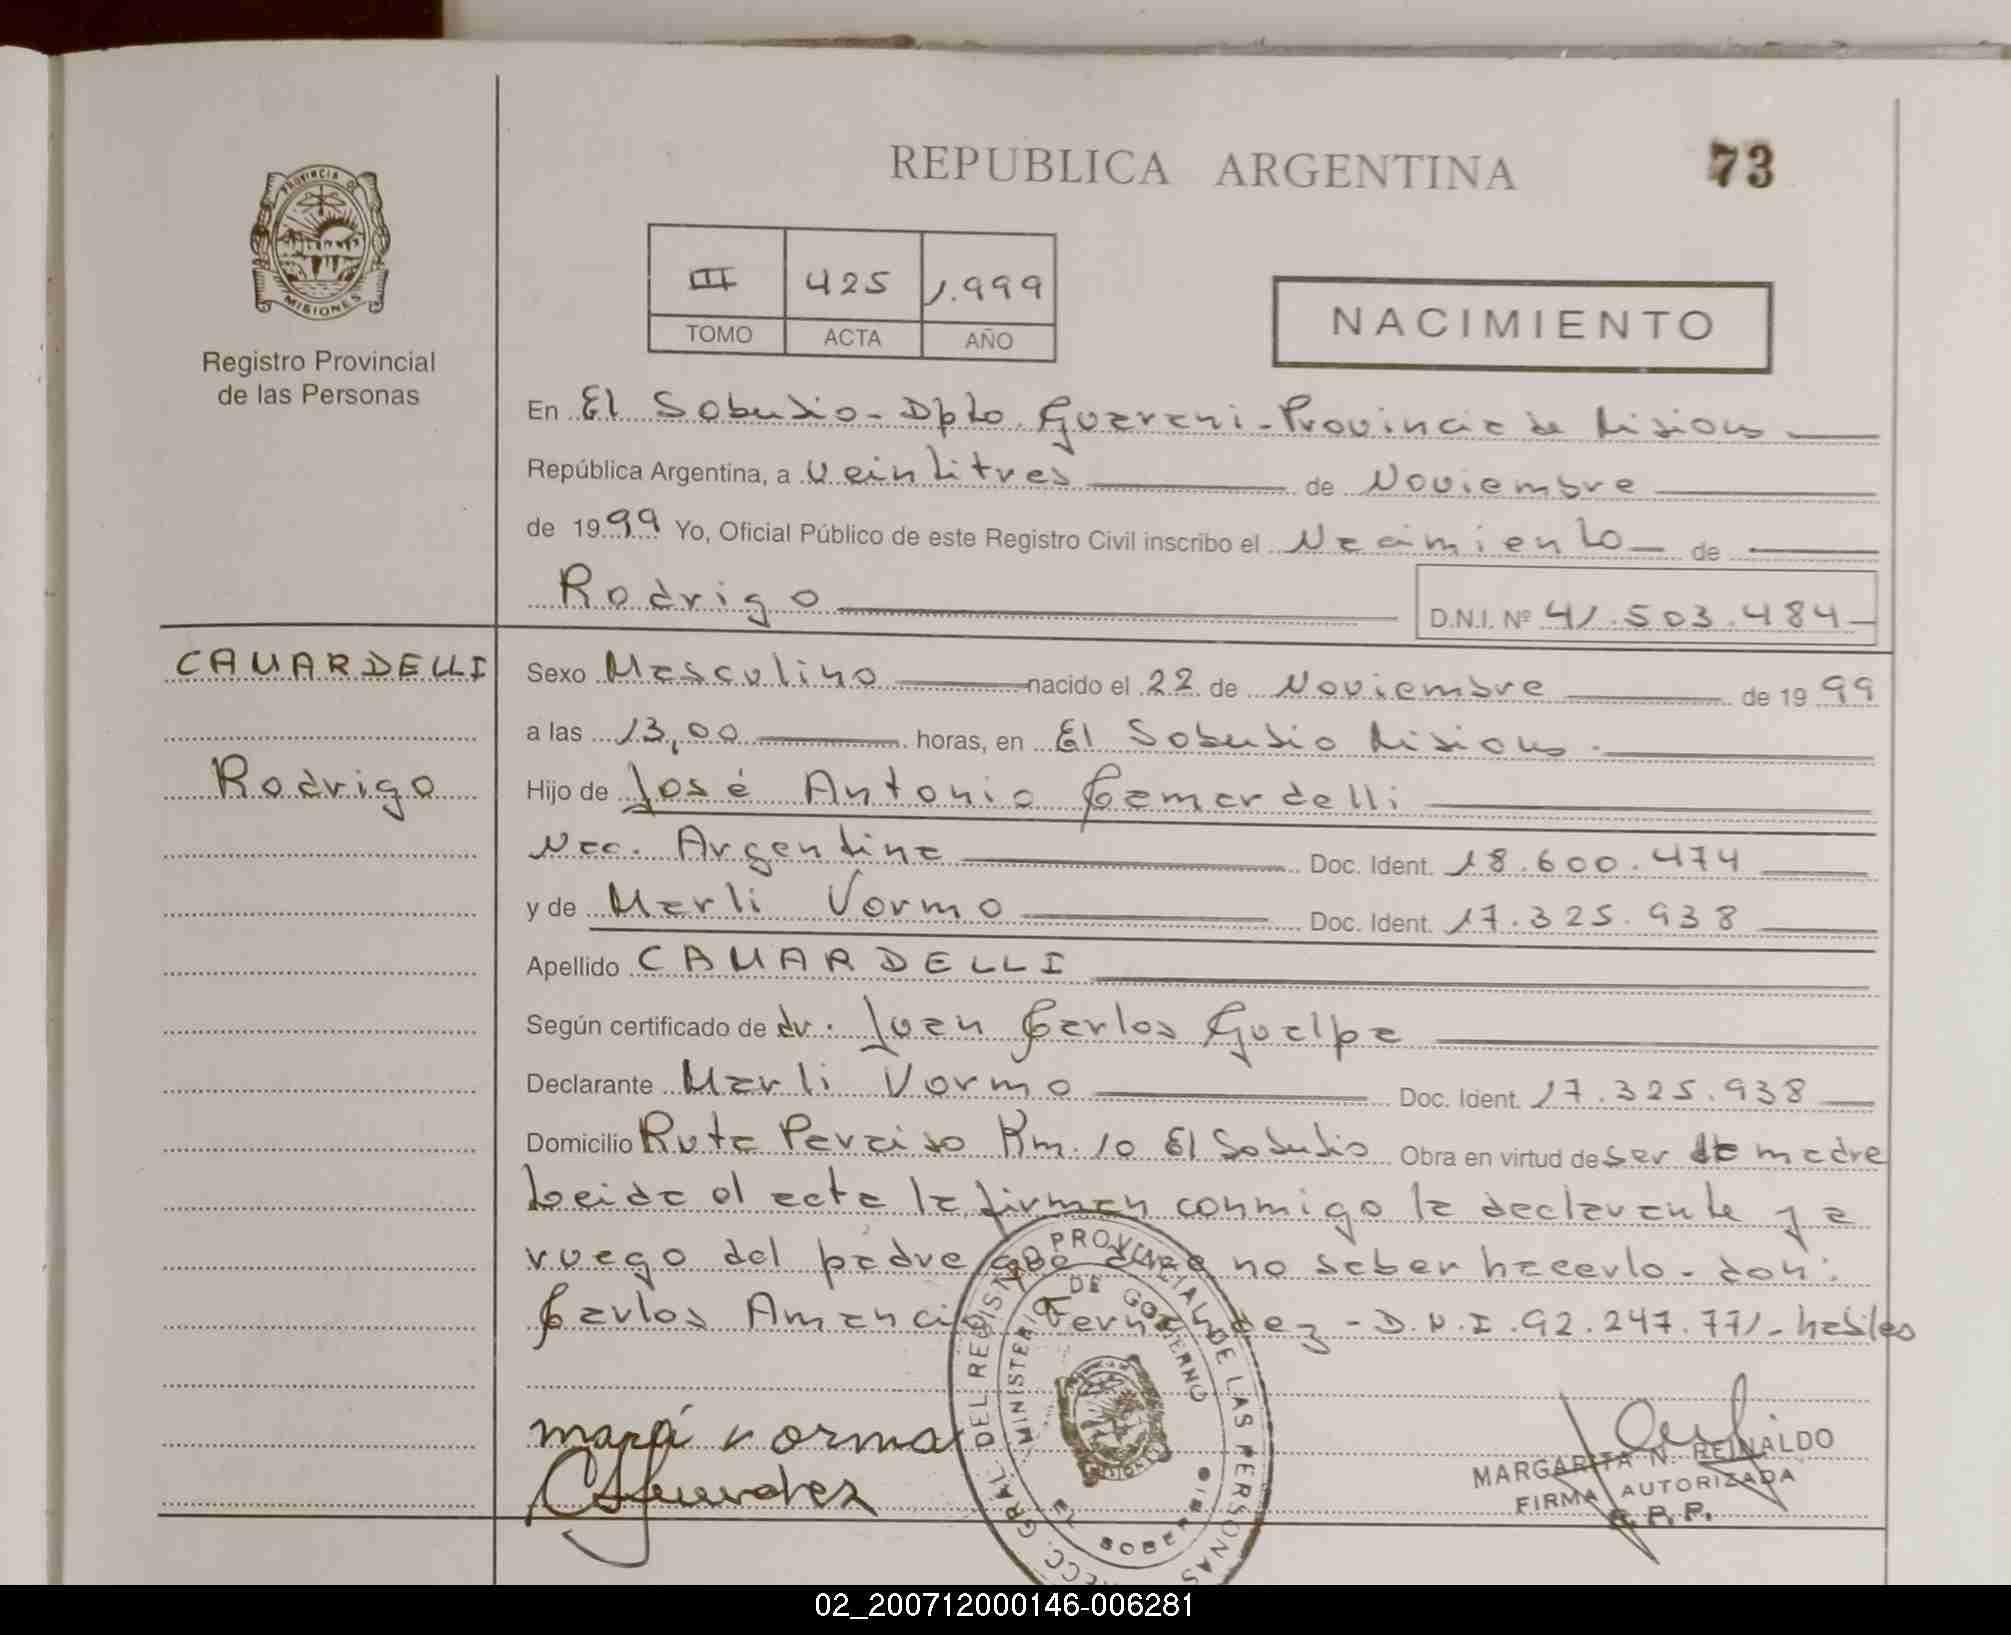 REPUBLICA ARGENTINA
73
PROVINCIA DE
MISIONES
Registro Provincial
de las Personas
III 425 1.999
TOMO ACTA AÑO
NACIMIENTO
En El Soberbio - Dpto. Guarani - Provincia de Misiones
República Argentina, a veintitres de Noviembre
de 1999 Yo, Oficial Público de este Registro Civil inscribo el Nacimiento de
Rodrigo
D.N.I. Nº 41.503.484
CAMARDELLI
Rodrigo
Sexo Masculino nacido el 22 de Noviembre de 1999
a las 13,00 horas, en El Soberbio Misiones
Hijo de José Antonio Camardelli
Nac. Argentina Doc. Ident. 18.600.474
y de Marli Vormo Doc. Ident. 17.325.938
Apellido CAMARDELLI
Según certificado de dr. Juan Carlos Guelpa
Declarante Marli Vormo Doc. Ident. 17.325.938
Domicilio Ruta Paraiso Km. 10 El Soberbio Obra en virtud de ser la madre
Leida el acta la firman conmigo la declarante y a
ruego del padre que dice no saber hacerlo - don:
Carlos Amancio Fernandez - D.N.I. 92.247.771 - habiles
vorma
DIRECC. GRAL. DEL REGISTRO PROVINCIAL DE LAS PERSONAS
MINISTERIO DE GOBIERNO
EL SOBERBIO
MARGARITA N. REINALDO
FIRMA AUTORIZADA
R.P.P.
02_200712000146-006281